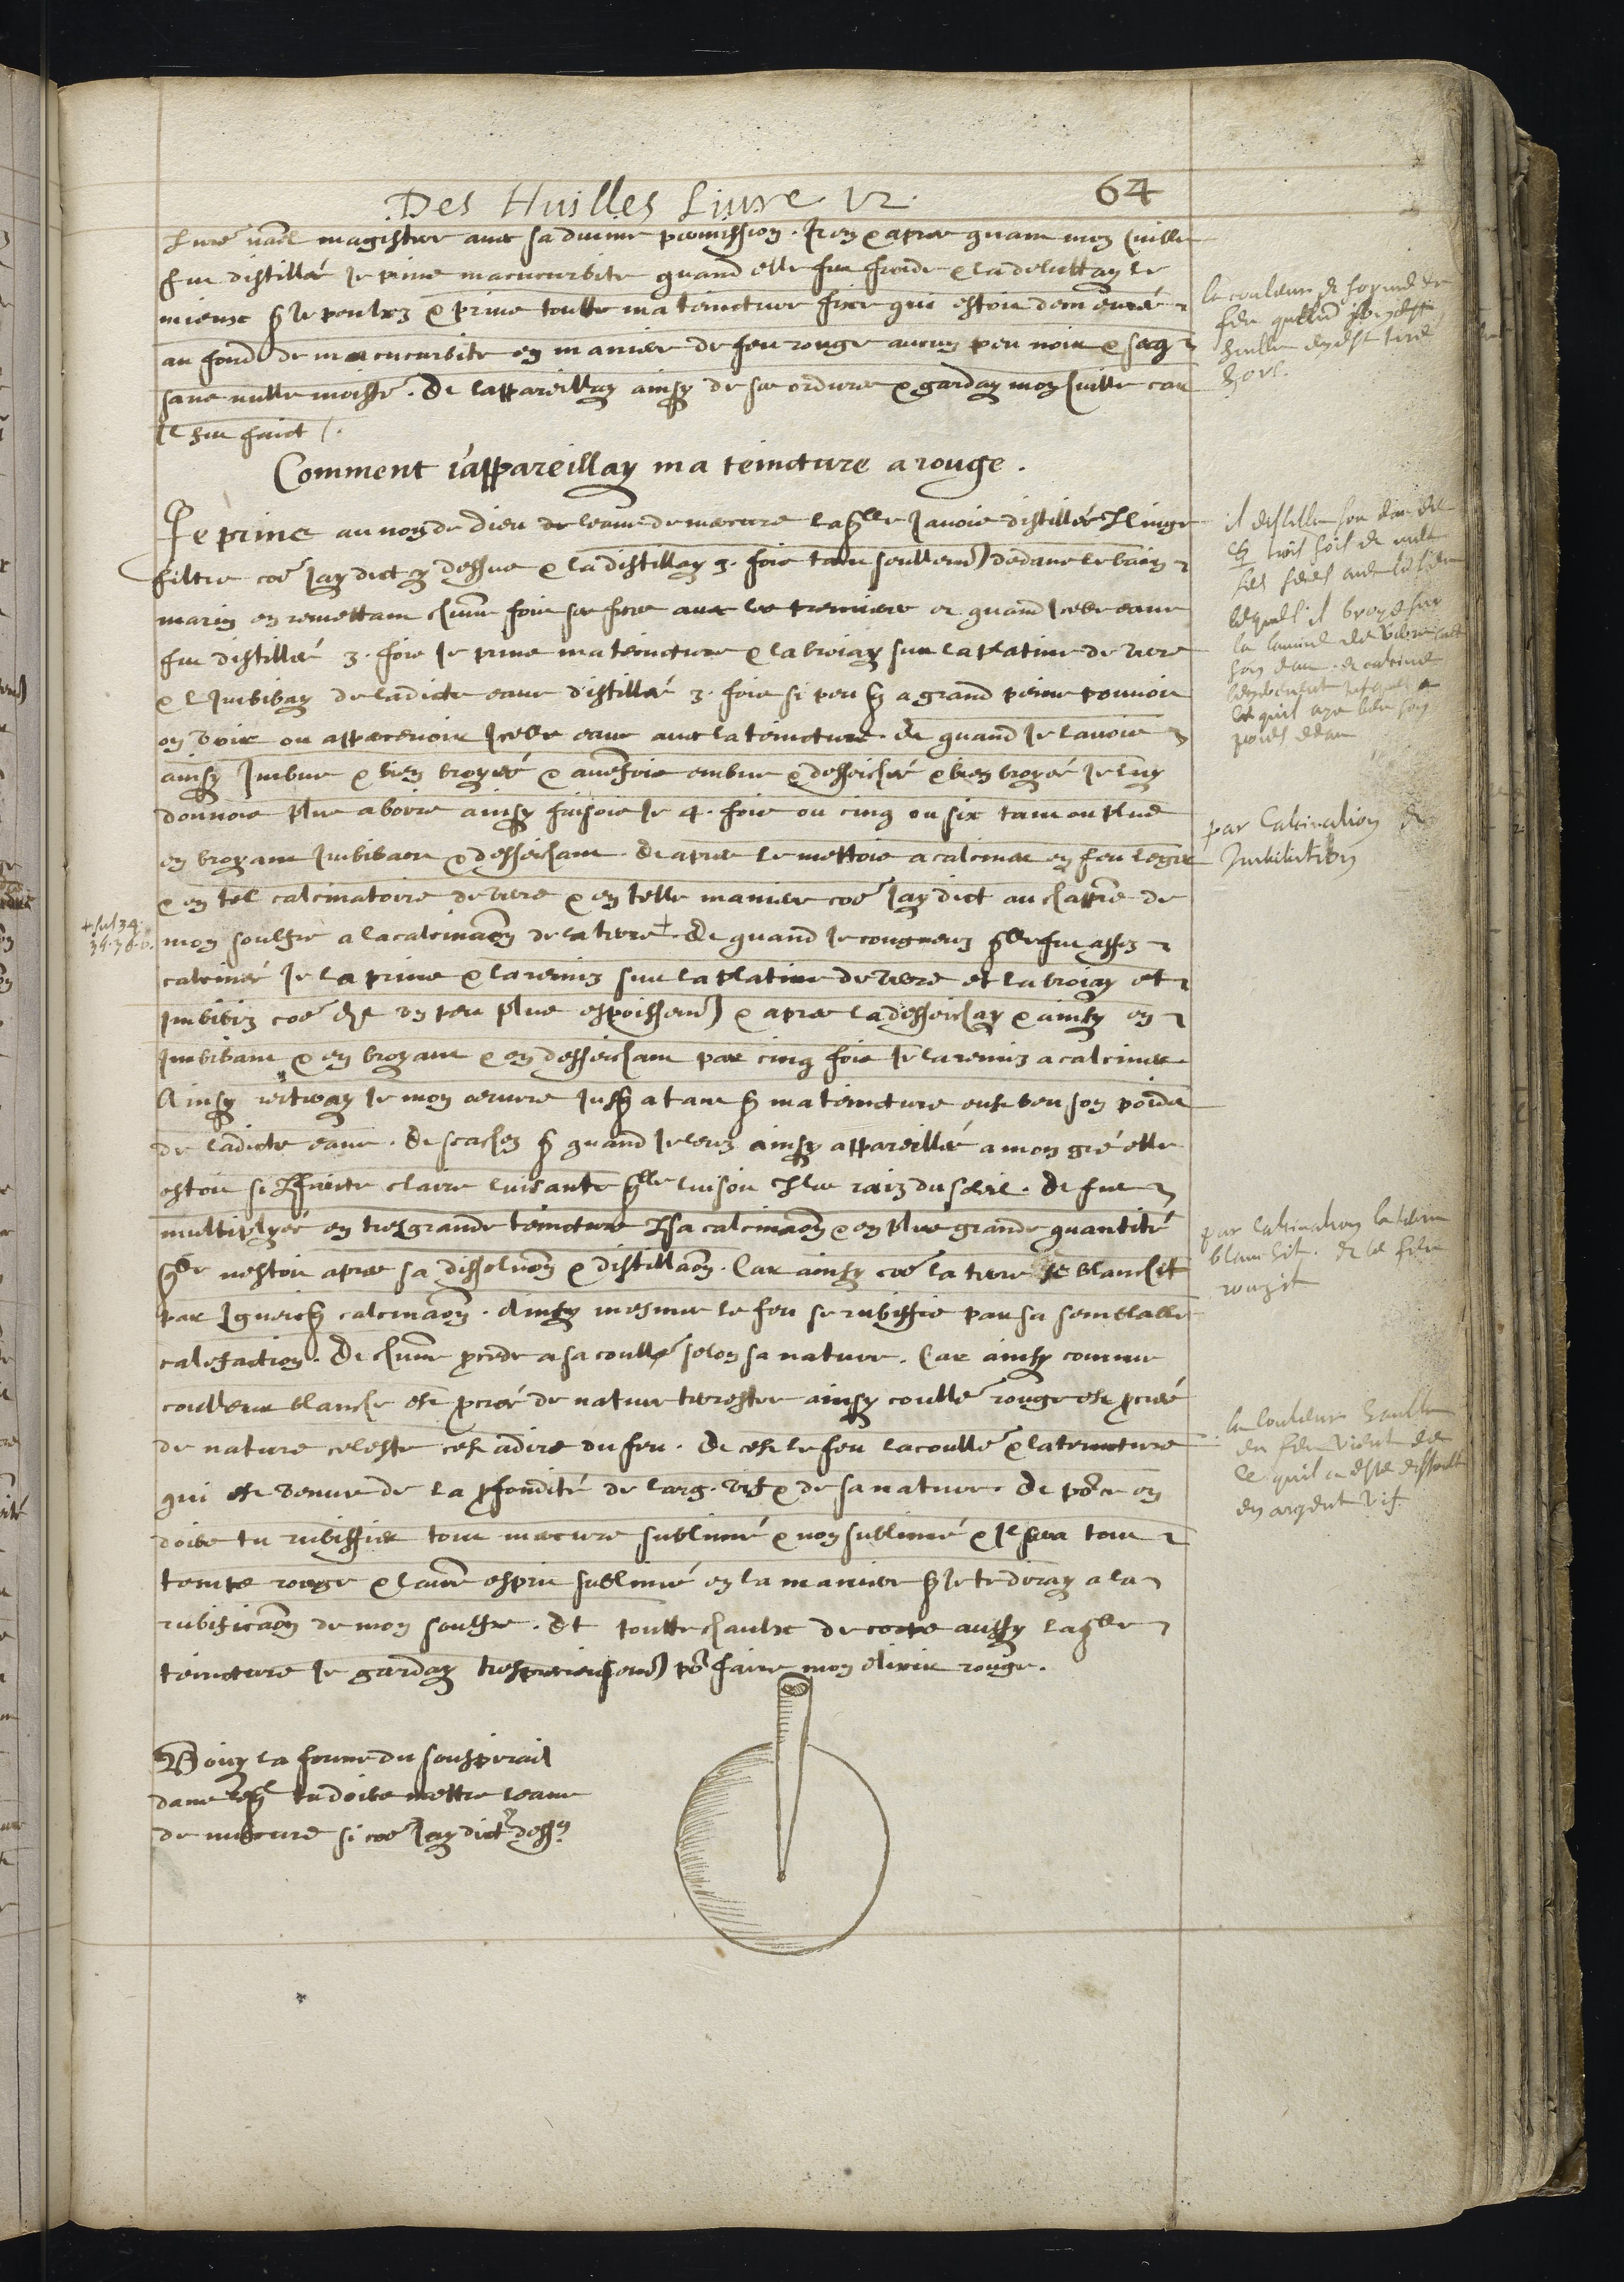 Des Huilles Liure. V2.
64
magistere auec sa diuine permission. Item & apres quant mon huille
fut distillée Je prins ma cucurbite quand elle fut froide & la deluttay le
mieux q̃ Je peulx & prins toutte ma teincture fixe qui estoit demeurée
au fond de ma cucurbite en maniere de feu rouge aucun peu noir & secq
sans nulle moisté. Et lappareillay ainsy de ses ordures & garday mon huille car
Il fut faict
Comment i'appareillay ma teincture a rouge.
Je prins au nom de Dieu de leaue de mercure laq̃lle Jauois distillée
filtre cõe Jay dict cy dessus & la distillay 3. fois tant seullemt dedans le bain
marin en remettant chũne fois ses feces auec les premieres et quand Icelle eaue
fut distillée 3. fois Je prins ma teincture & la broiay sur la platine de verre
& l Imbibay de ladicte eaue distillée 3. fois si peu q̃ a grand peine pouuoit
on voir ou appercevoir Icelle eaue auec la teincture. Et quand Je lauois
ainsy Imbue & bien broyée & autrefois embue & desseichée & bien broyée Je luy
donnois plus a boire ainsy faisois Je 4. fois ou cinq ou six tant ou plus
en broyant Imbibant & desseichant. Et apres le mettois a calciner en feu legier
& en tel calcinatoire de verre & en telle maniere cõe Jay dict au chapitre de
mon soulfre a la calcinaõn de la terre + Et quand Je congneuz q̃lle fut assez
calcinée Je la prins & la remis sur la platine de verre et la broiay et
Imbibiz cõe dict un peu plus espoissemt & apres la desseichay & ainsy en
Imbibant & en broyant & en desseichant par cinq fois Je la remiz a calciner
Ainsy reteray Je mon oeuure Jusq̃ a tant q̃ ma teincture eust beu son poids
de ladicte eaue. Et scachez q̃ quand Je leuz ainsy appareillée a mon gré elle
estoit si parfaicte claire luisante q̃lle luisoit les raiz du soleil. Et fut
multiplyée en tres grande teincture par sa calcinaõn & en plus grande quantité
q̃lle nestoit apres sa dissoluõn & distillaõn. Car ainsy cõe la terre se blanchit
par calcinaõn. Ainsy mesme le feu se rubiffie par sa semblable
calefaction. Et chũne procede a sa coulleur selon sa nature. Car ainsy comme
coulleur blanche est procréé de nature terrestre ainsy coulleur rouge est procréé
de nature celeste cest adire du feu. Et cest le feu la coulleur & la teincture
qui est venue de la profondité de larg. vif & de sa nature. Et pour ce en
doibs tu rubiffier tout mercure sublimé & non sublimé & Il sera tout
temps rouge & chũne esprit sublimé en la maniere q̃ Je te diray a la
rubificaõn de mon soulfre. Et toutte chaulx de corps aussy laq̃lle
teincture Je garday tres precieusemt pour faire mon elixir rouge.
Voicy la forme du souspirail
dans leq̃l tu doibs mettre leaue
de mercure si cõe Jay dict cy dess9
+ sul 34.
35. 36.
la couleur & soyme de
feu quand son
huille en est tiré
hors.
il distille son eau de
☿ trois fois et mesle
ses feces auec
lesquels il broye sur
la lamine de verre auec
son eau et calcine
jusques a
ce quil aye beu son
poids deau
par Calcination &
Imbibition
par calcination la terre
blanchit. & le feu
rougit
la couleur haulte
du feu vient de
ce quil a esté dissoult
en argent vif.